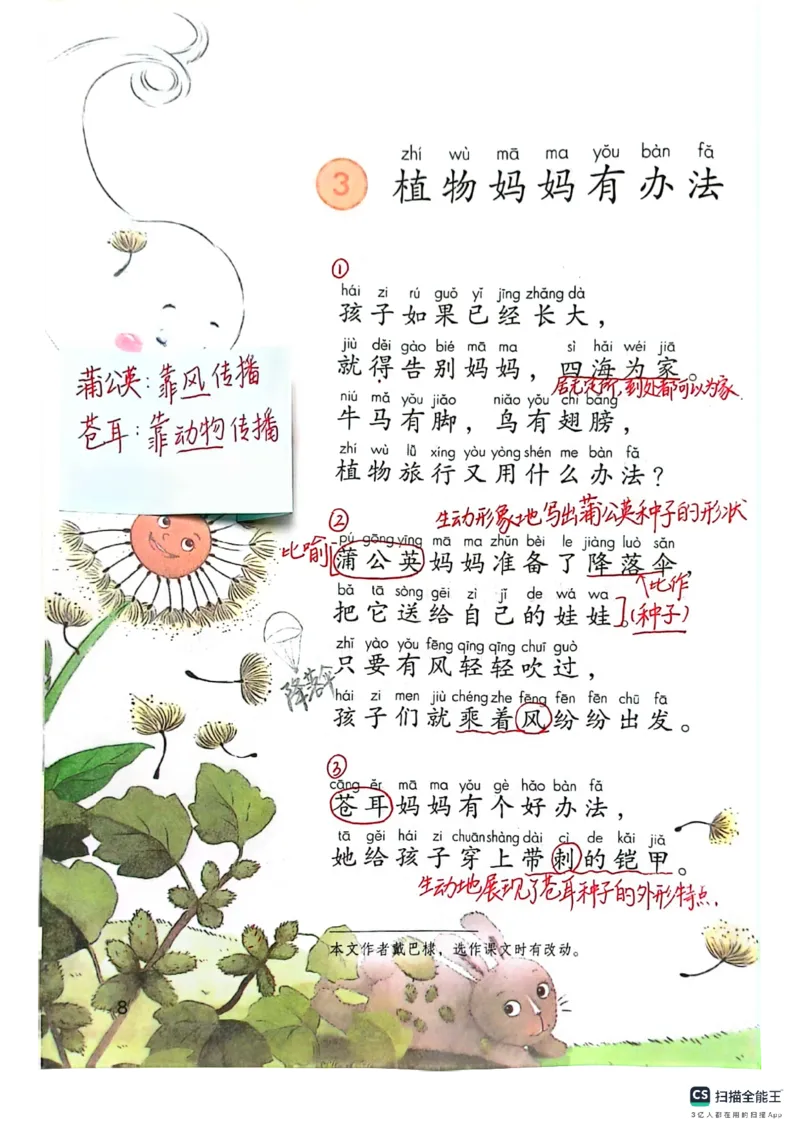 zhí wù mā ma yǒu bàn fǎ
3 植物妈妈有办法
①
hái zi rú guǒ yǐ jīng zhǎng dà
孩子如果已经长大，
jiù děi gào bié mā ma sì hǎi wéi jiā
就得告别妈妈，四海为家。
居无定所，到处都可以为家.
niú mǎ yǒu jiǎo niǎo yǒu chì bǎng
牛马有脚，鸟有翅膀，
zhí wù lǚ xíng yòu yòng shén me bàn fǎ
植物旅行又用什么办法？
蒲公英：靠风传播
苍耳：靠动物传播
生动形象地写出蒲公英种子的形状
②
pú gōng yīng mā ma zhǔn bèi le jiàng luò sǎn
比喻 蒲公英妈妈准备了降落伞，
比作
bǎ tā sòng gěi zì jǐ de wá wa
把它送给自己的娃娃。（种子）
zhǐ yào yǒu fēng qīng qīng chuī guò
只要有风轻轻吹过，
降落伞
hái zi men jiù chéng zhe fēng fēn fēn chū fā
孩子们就乘着风纷纷出发。
③
cāng ěr mā ma yǒu gè hǎo bàn fǎ
苍耳妈妈有个好办法，
tā gěi hái zi chuān shàng dài cì de kǎi jiǎ
她给孩子穿上带刺的铠甲。
生动地展现了苍耳种子的外形特点.
本文作者戴巴棣，选作课文时有改动。
8
CS 扫描全能王
3亿人都在用的扫描App